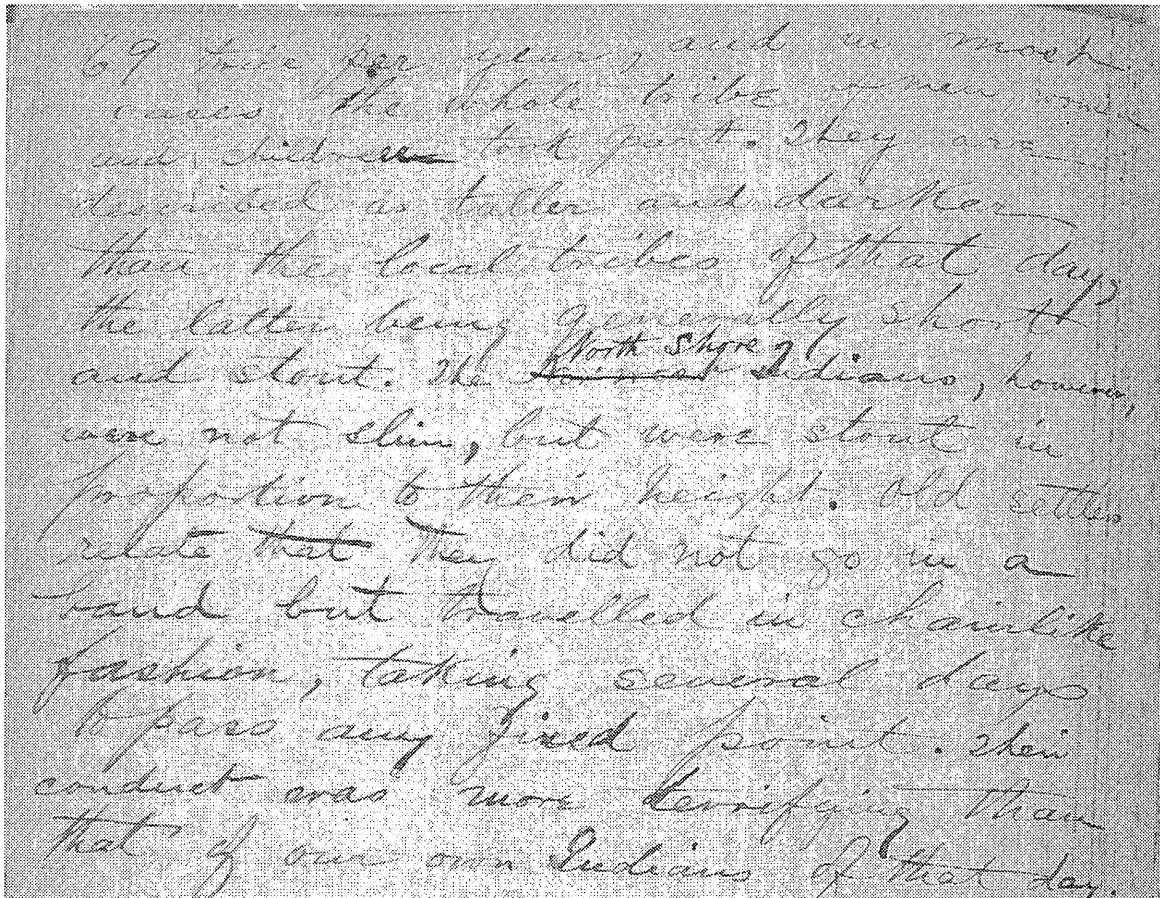 69 twice per year, and in most
cases the whole tribe of men women
and children took part. They are
described as taller and darker
than the local tribes of that day,
the latter being generally short
North Shore
and stout. The Indians, however,
were not slim, but were stout in
proportion to their height. Old settlers
relate that they did not go in a
band but travelled in chainlike
fashion, taking several days
to pass any fixed point. Their
conduct was more terrifying than
that of our own Indians of that day.